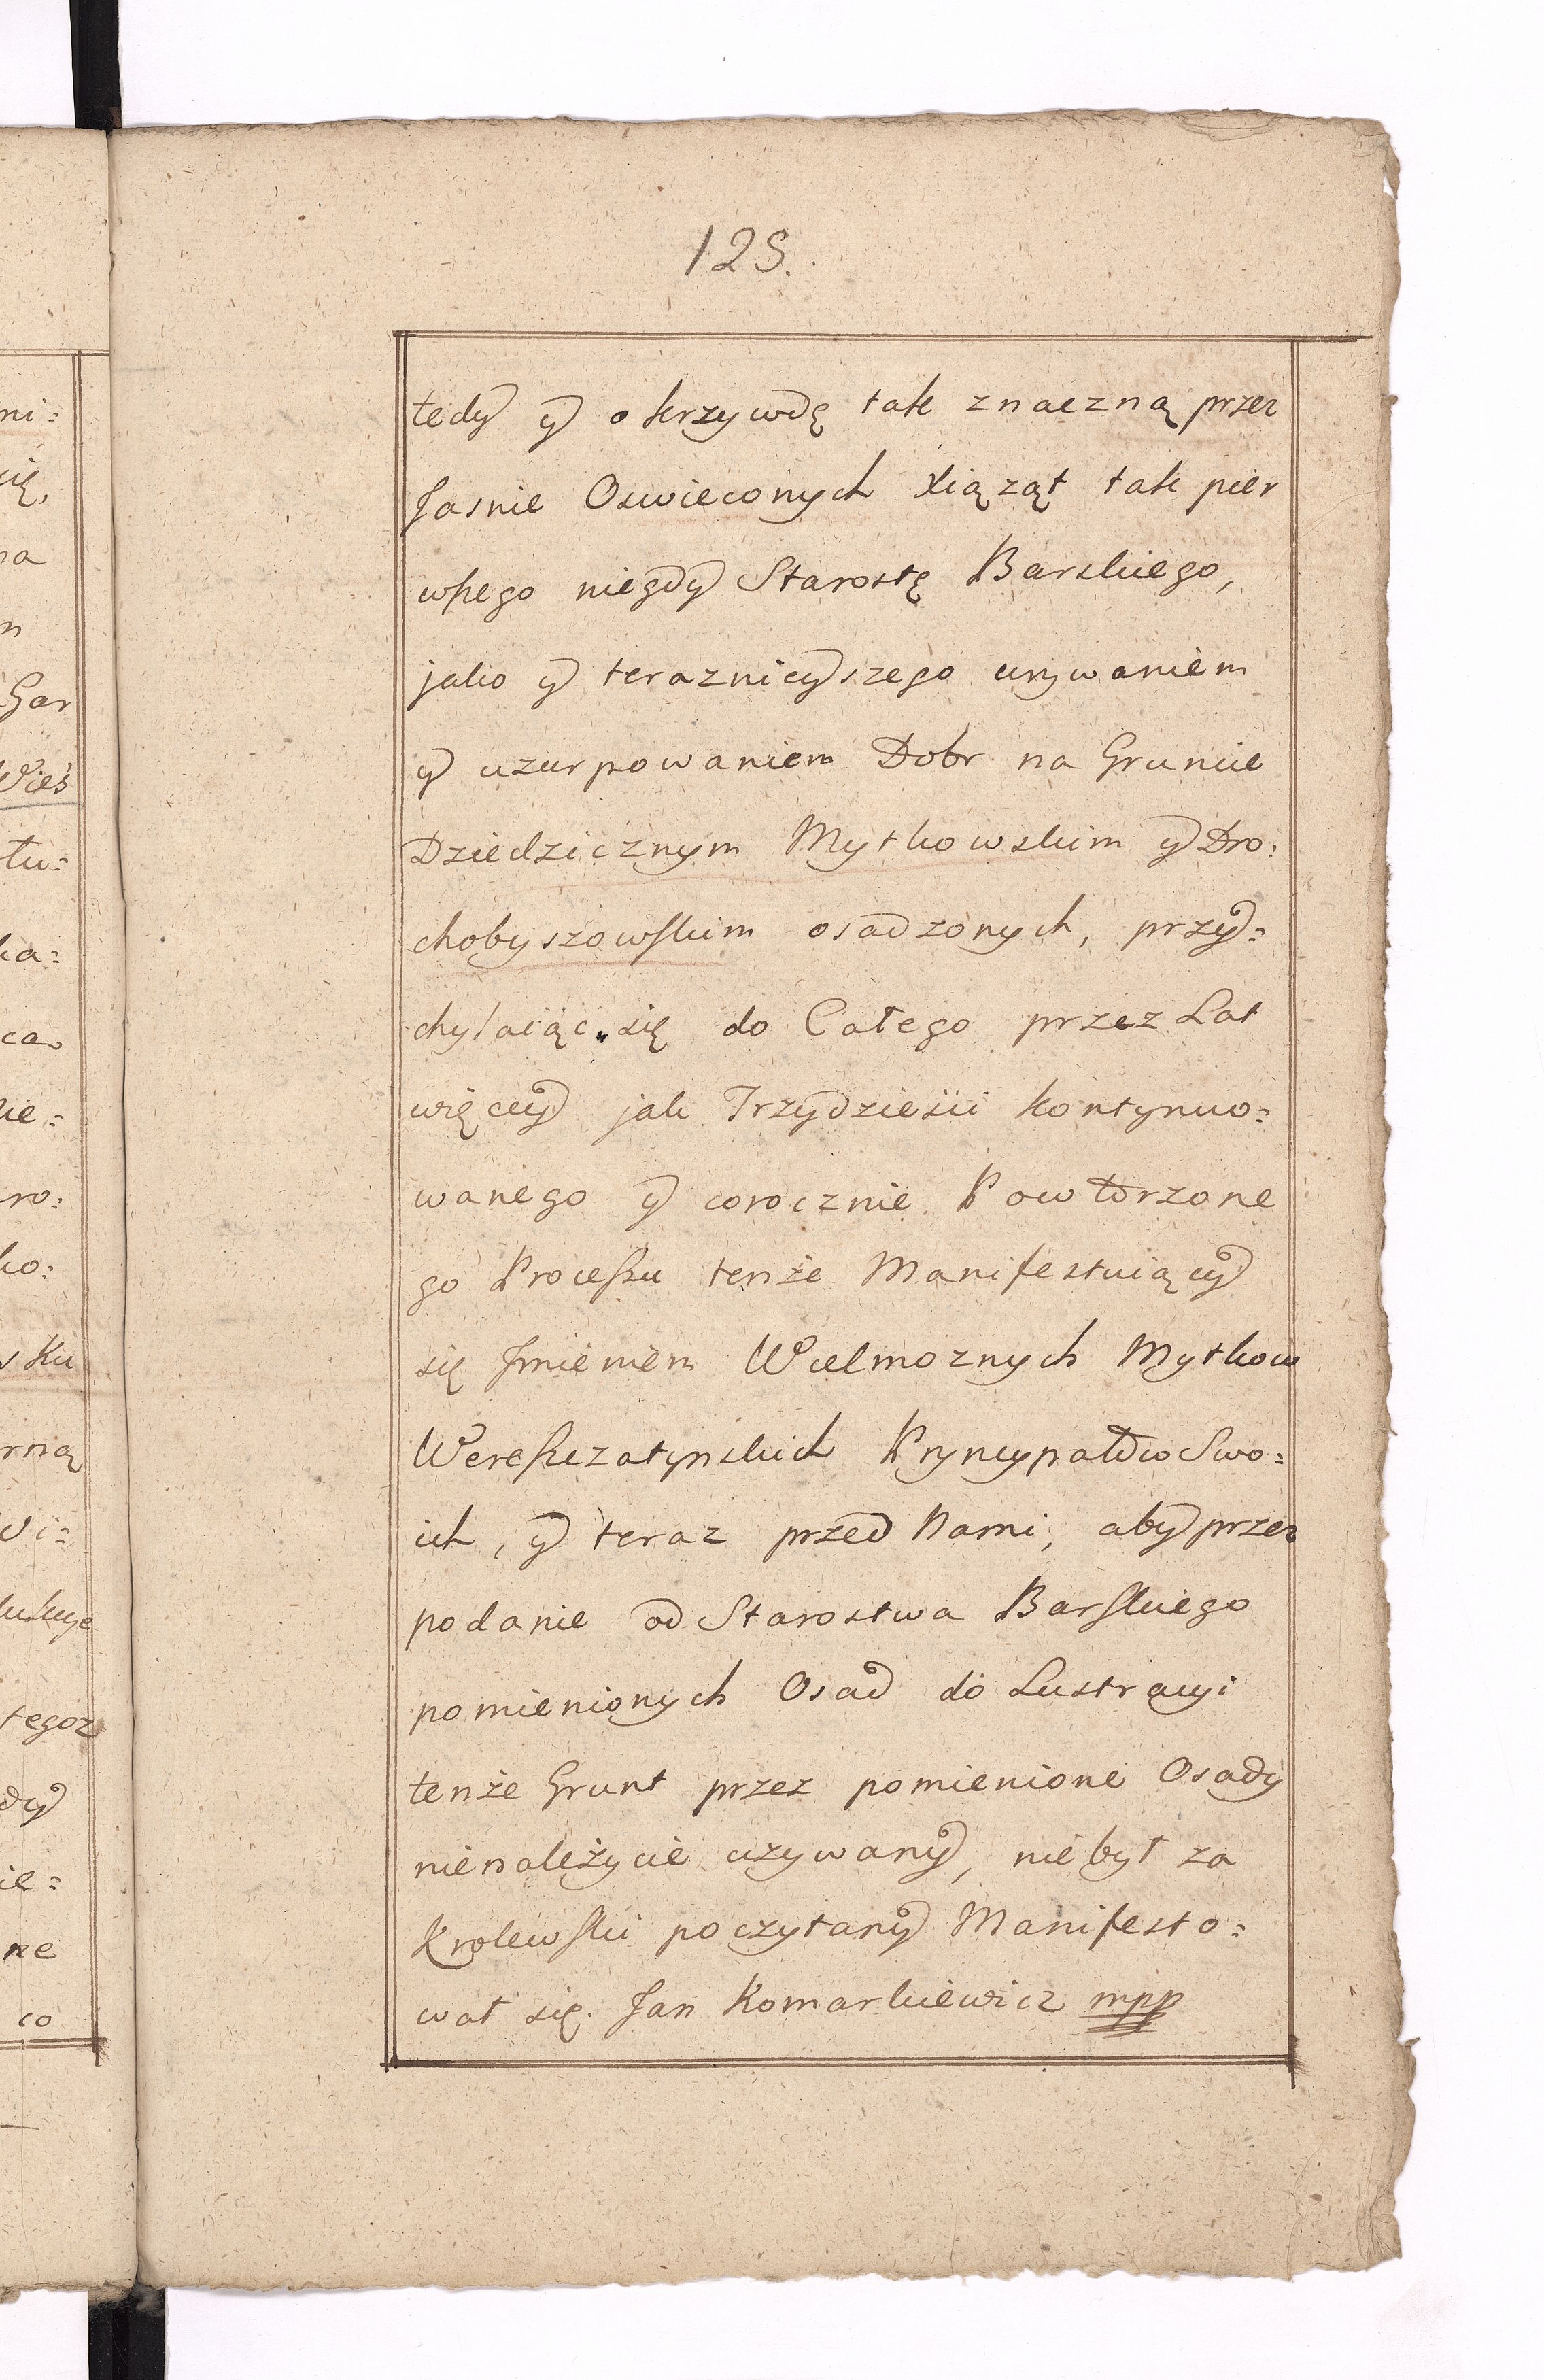 125.
tedy y o krzywdę tak znaczną przez
Jasnie Oswieconych Xiąząt tak pier
wszego niegdy Starostę Barskiego,
jako y teraznieyszego uzywaniem
y uzurpowaniem Dobr na Gruncie
Dziedzicznym Mytkowskim y Dro:
chobyszowskim osadzonych, przy:
chylaiąc się do Całego przez Lat
więcey jak Trzydziesci kontynuo:
wanego y corocznie Powtorzone
go Processu tenże Manifestuiący
się Jmieniem Wielmoznych Mytkow
Wereszczatynskich Pryncypałow Swo:
ich, y teraz przed Nami, aby przez
podanie od Starostwa Barskiego
pomienionych Osad do Lustracyi
tenże Grunt przez pomienione Osady
nienależycie uzywany, nie był za
Krolewski poczytany Manifesto:
wał się. Jan Komarkiewicz mpp
ni:
cię,
na
Gar
Wieś
łu:
ka:
ca
ie:
ro:
ko:
s Ku
rną
wi:
tegoz
dy
ie:
ne
co